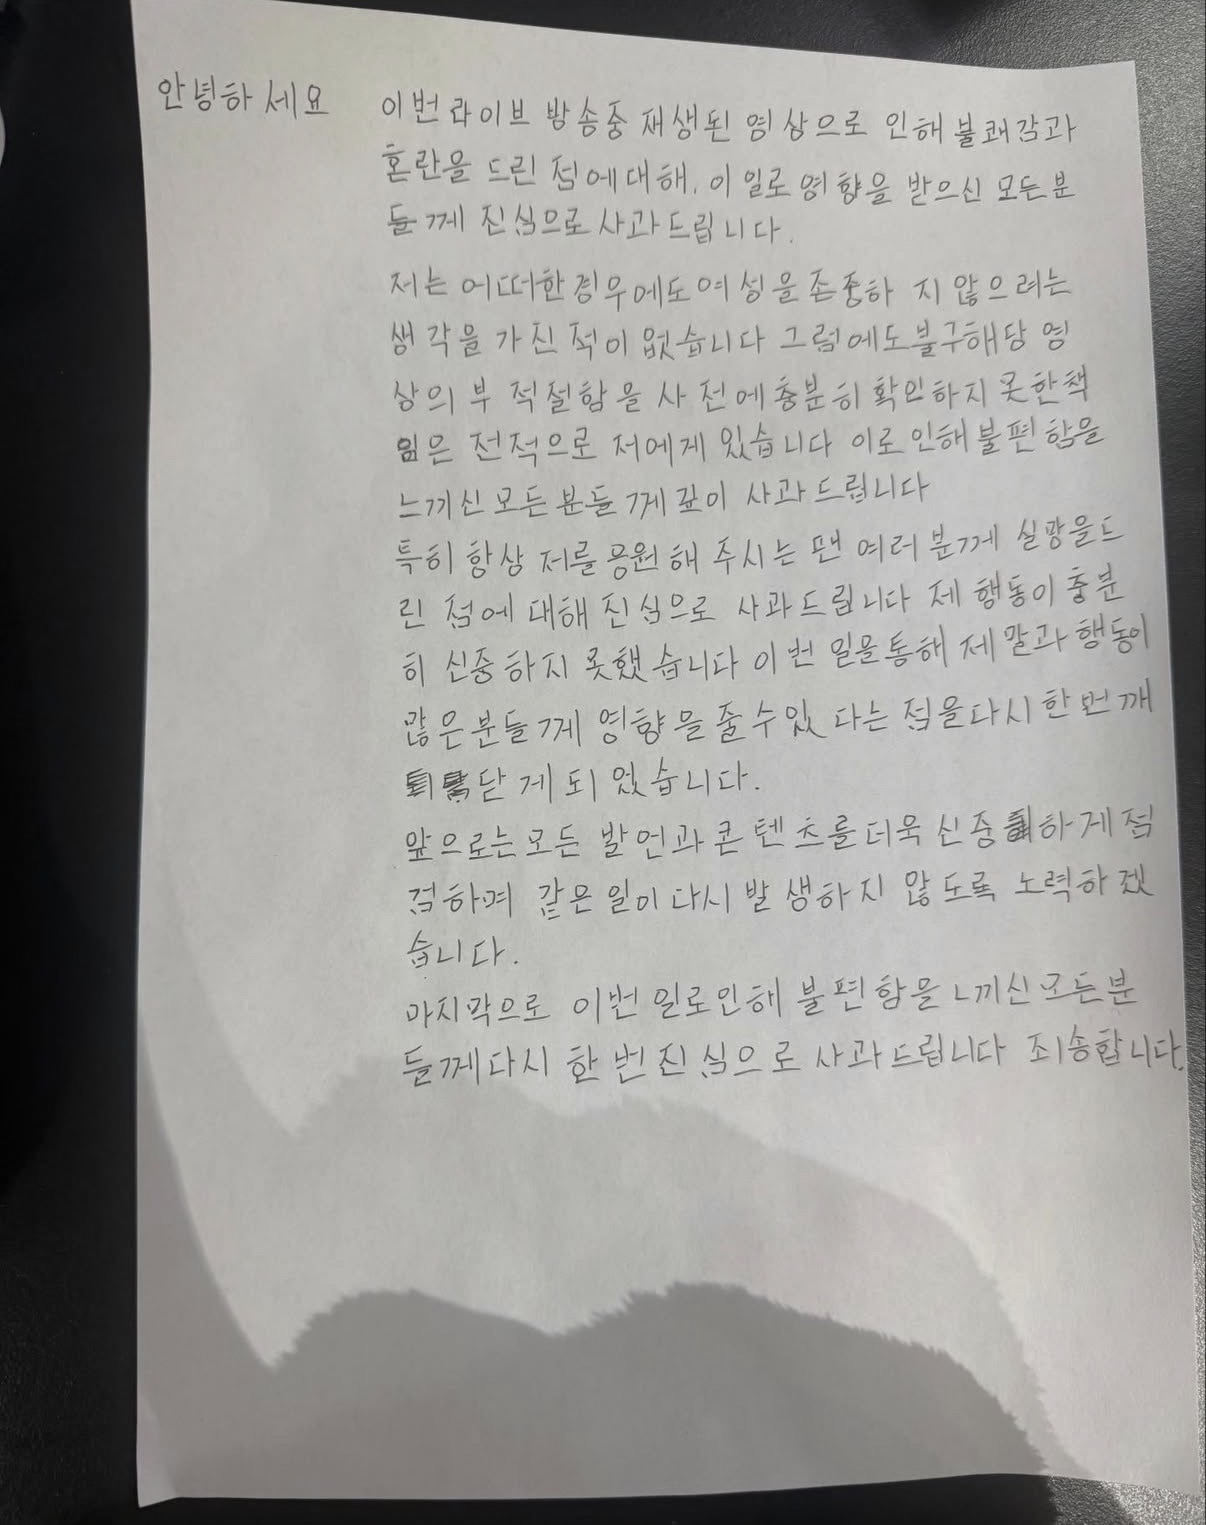 안녕하세요 이번 라이브 방송중 재생된 영상으로 인해 불쾌감과
혼란을 드린 점에대해, 이 일로 영향을 받으신 모든분
들께 진심으로 사과드립니다.
저는 어떠한 경우에도 여성을 존중하 지 않으려는
생각을 가진 적이 없습니다 그럼에도불구해당 영
상의 부 적절함을 사 전에충분히 확인하지 못한책
임은 전적으로 저에게 있습니다 이로 인해 불편 함을
느끼신 모든 분들 께 깊이 사과드립니다
특히 항상 저를 응원 해 주시는 팬 여러 분께 실망을드
린 점에 대해 진심으로 사과드립니다 제 행동이 충분
히 신중하지 못했 습니다 이 번 일을통해 제 말과 행동이
많은분들 께 영향을 줄수있 다는 점을다시 한번깨
닫 게 되 었습니다.
앞으로는모든 발언과 콘텐츠를 더욱 신중하게점
검하며 같은 일이 다시 발생하지 않도록 노력하겠
습니다.
마지막으로 이번 일로인해 불편함을 느끼신모든분
들께다시 한 번 진심으로 사과드립니다 죄송합니다.